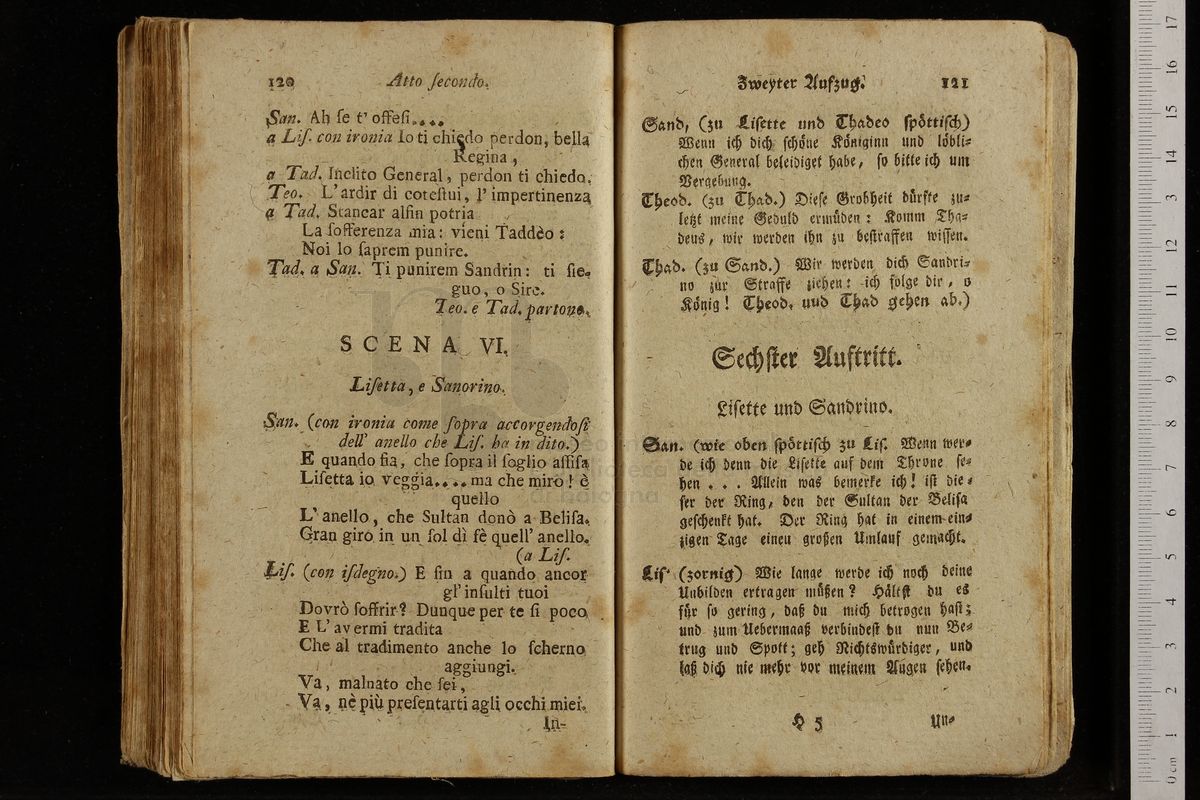 120 Atto ſecondo.
San. Ah ſe t' offeſi....
a Liſ. con ironia Io ti chiedo perdon, bella
Regina,
a Tad. Inclito General, perdon ti chiedo.
Teo. L'ardir di coteſtui, l'impertinenza
a Tad. Stancar alfin potria
La ſofferenza mia: vieni Taddèo:
Noi lo ſaprem punire.
Tad. a San. Ti punirem Sandrin: ti ſie-
guo, o Sire.
Teo. e Tad. partono.
SCENA VI.
Liſetta, e Sanorino.
San. (con ironia come ſopra accorgendoſi
dell' anello che Liſ. ha in dito.)
E quando fia, che ſopra il ſoglio aſſiſa
Liſetta io veggia.... ma che miro! è
quello
L'anello, che Sultan donò a Beliſa.
Gran giro in un ſol dì fè quell' anello.
(a Liſ.
Liſ. (con iſdegno.) E ſin a quando ancor
gl' inſulti tuoi
Dovrò ſoffrir? Dunque per te ſi poco
E L'avermi tradita
Che al tradimento anche lo ſcherno
aggiungi.
Va, malnato che ſei,
Va, nè più preſentarti agli occhi miei.
In-
Zweyter Aufzug. 121
Sand, (zu Liſette und Thadeo ſpöttiſch)
Wenn ich dich ſchöne Königinn und löbli-
chen General beleidiget habe, ſo bitte ich um
Vergebung.
Theod. (zu Thad.) Dieſe Grobheit dürfte zu-
letzt meine Geduld ermüden: Komm Tha-
deus, wir werden ihn zu beſtraffen wiſſen.
Thad. (zu Sand.) Wir werden dich Sandri-
no zur Straffe ziehen: ich folge dir, o
König! Theod. uud Thad gehen ab.)
Sechſter Auftritt.
Liſette und Sandrino.
San. (wie oben ſpöttiſch zu Liſ. Wenn wer-
de ich denn die Liſette auf dem Throne ſe-
hen . . . Allein was bemerke ich! iſt die-
ſer der Ring, den der Sultan der Beliſa
geſchenkt hat. Der Ring hat in einem ein-
zigen Tage eineu großen Umlauf gemacht.
Liſ. (zornig) Wie lange werde ich noch deine
Unbilden ertragen müßen? Hältſt du es
für ſo gering, daß du mich betrogen haſt;
und zum Uebermaaß verbindeſt du nun Be-
trug und Spott; geh Nichtswürdiger, und
laß dich nie mehr vor meinem Augen ſehen.
H 5 Un-